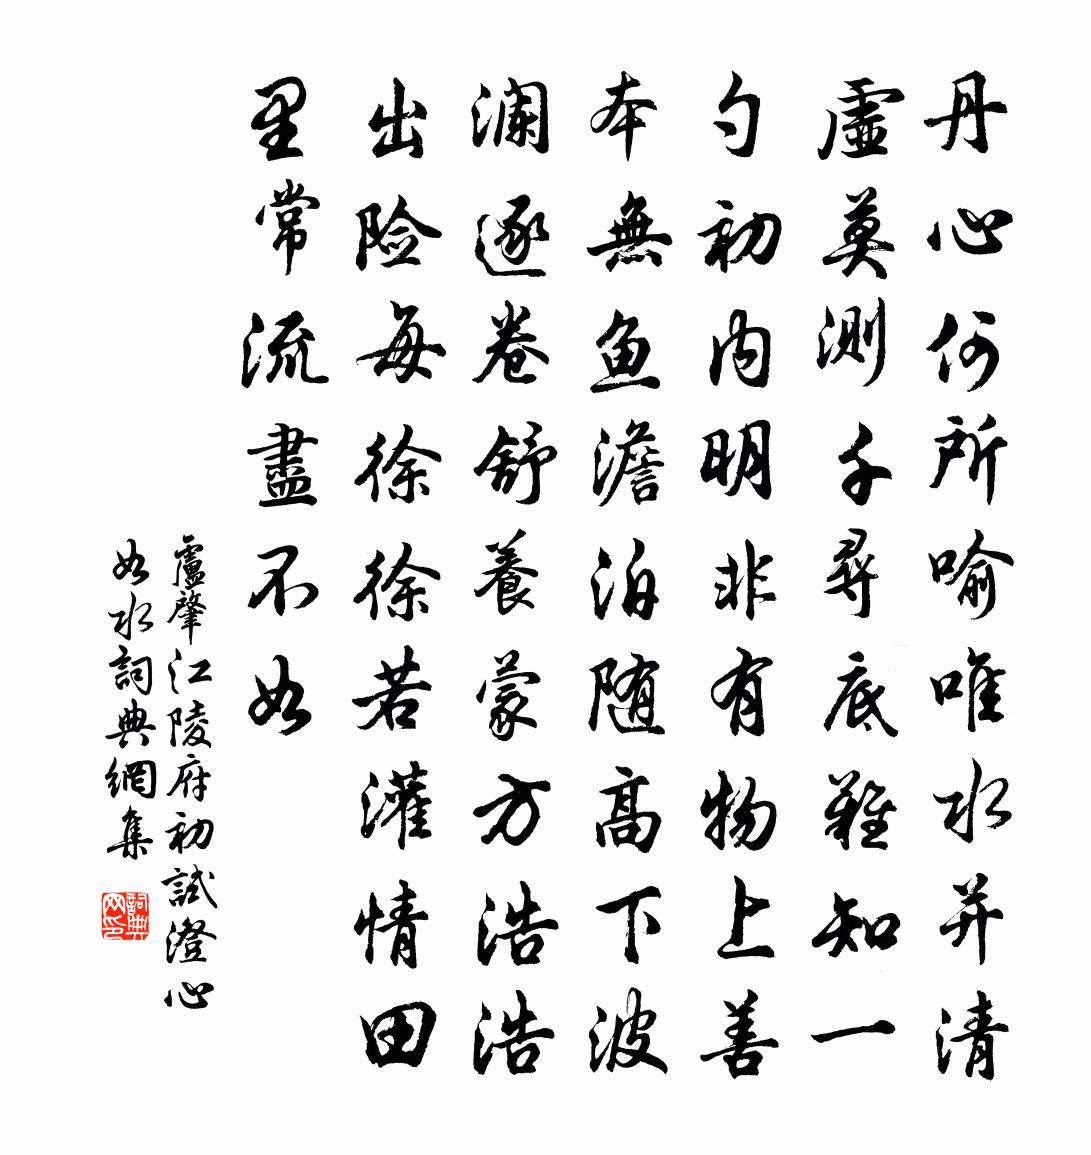 丹心何所喻唯水并清
虛莫測千尋底難知一
勺初内明非有物上善
本無魚澹泊随高下波
澜逐卷舒養蒙方浩浩
出险每徐徐若灌情田
里常流盡不如
盧肇江陵府初試澄心
如水詞典網集
詞典网印